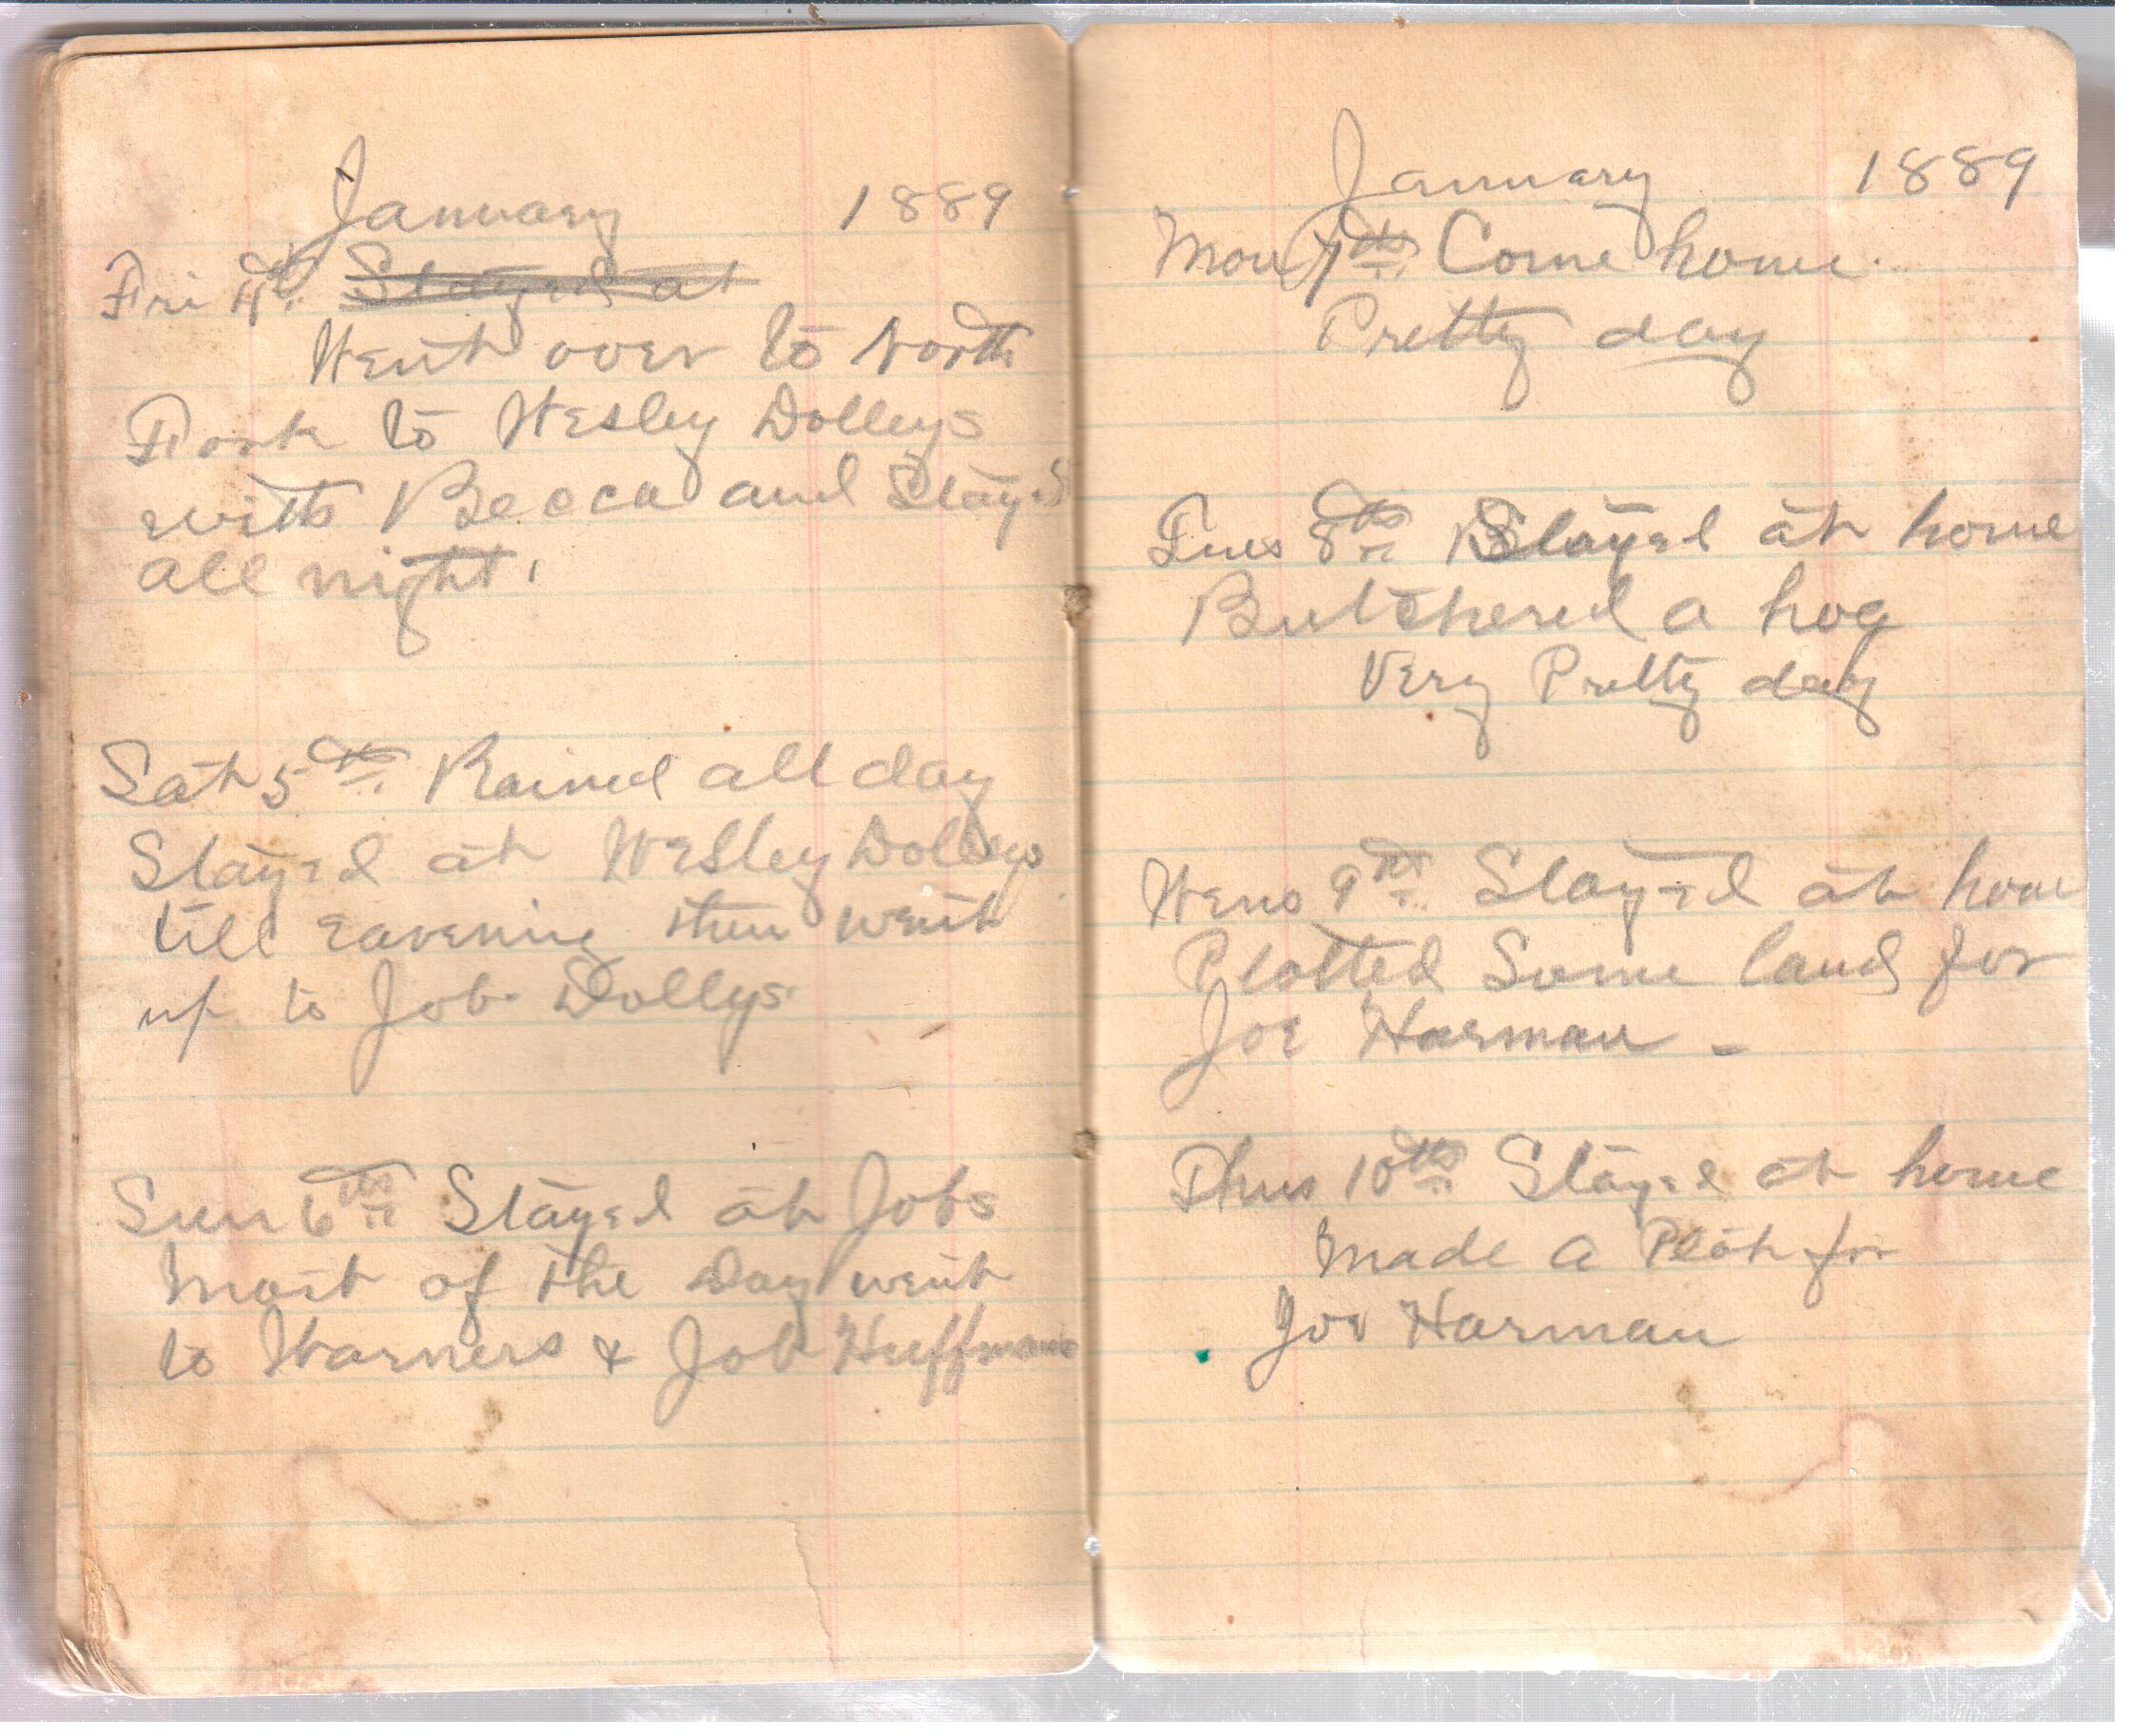 January 1889
Fri 4th. Stayed at
Went over to North
Fork to Wesley Dolleys
with Becca and Stayed
all night.
Sat 5th. Rained all day
Stayed at Wesley Dolleys
till eavening then went
up to Job Dollys
Sun 6th Stayed at Jobs
most of the Day went
to Warners & Job Huffmans
January 1889
Mon 7th Come home
Pretty day
Tues 8th Stayed at home
Butchered a hog
Very Pretty day
Wens 9th Stayed at home
Plotted Some land for
Joe Harman -
Thus 10th Stayed at home
Made a Plot for
Joe Harman